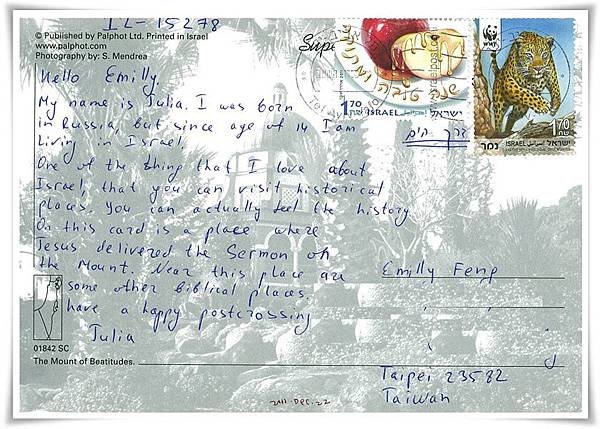 IL-15278
© Published by Palphot Ltd. Printed in Israel
www.palphot.com
Photography by: S. Mendrea
Hello Emilly.
My name is Julia. I was born
in Russia, but since age of 14 I am
living in Israel.
One of the thing that I love about
Israel, that you can visit historical
places. You can actually feel the history
On this card is a place where
Jesus delivered the Sermon on
the Mount. Near this place are
some other biblical places.
have a happy postcrossing
Julia
01842 SC
The Mount of Beatitudes.
שנה טובה ומבורכת
1.70 ISRAEL ישראל اسرائيل
WWF
1.70
ISRAEL اسرائيل ישראל
נמר
דרך הים
Emilly Feng
Taipei 23582
Taiwan
2011.DEC.22